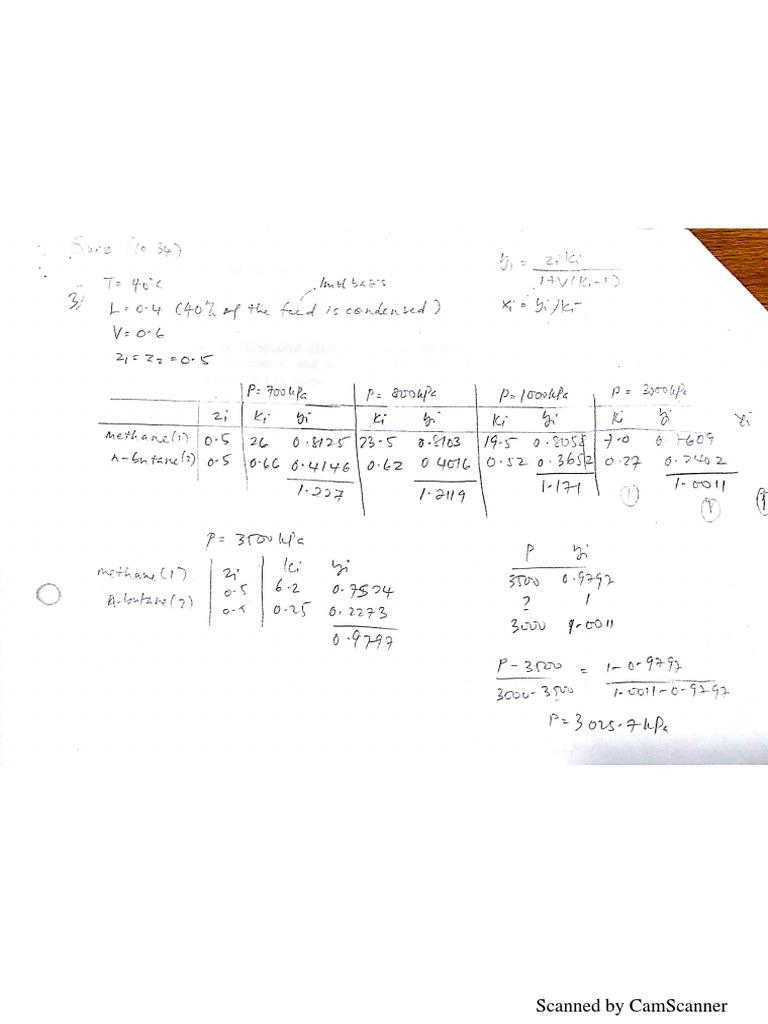 Quiz (10-34)
3) T = 40°C
1mol basis
L = 0.4 (40% of the feed is condensed)
V = 0.6
z1 = z2 = 0.5
yi = ziki / 1+V(ki-1)
xi = yi/ki
P = 700kPa P = 800kPa P = 1000kPa P = 3000kPa
zi Ki yi Ki yi Ki yi Ki yi xi
methane(1) 0.5 26 0.8125 23.5 0.8103 19.5 0.8058 7.0 0.7609
n-butane(2) 0.5 0.66 0.4146 0.62 0.4016 0.52 0.3652 0.27 0.2402
1.227 1.2119 1.171 1.0011
P = 3500kPa
zi Ki yi
methane(1) 0.5 6.2 0.7524
n-butane(2) 0.5 0.25 0.2273
0.9797
P yi
3500 0.9797
? 1
3000 1.0011
P - 3500 / 3000 - 3500 = 1 - 0.9797 / 1.0011 - 0.9797
P = 3025.7 kPa
Scanned by CamScanner